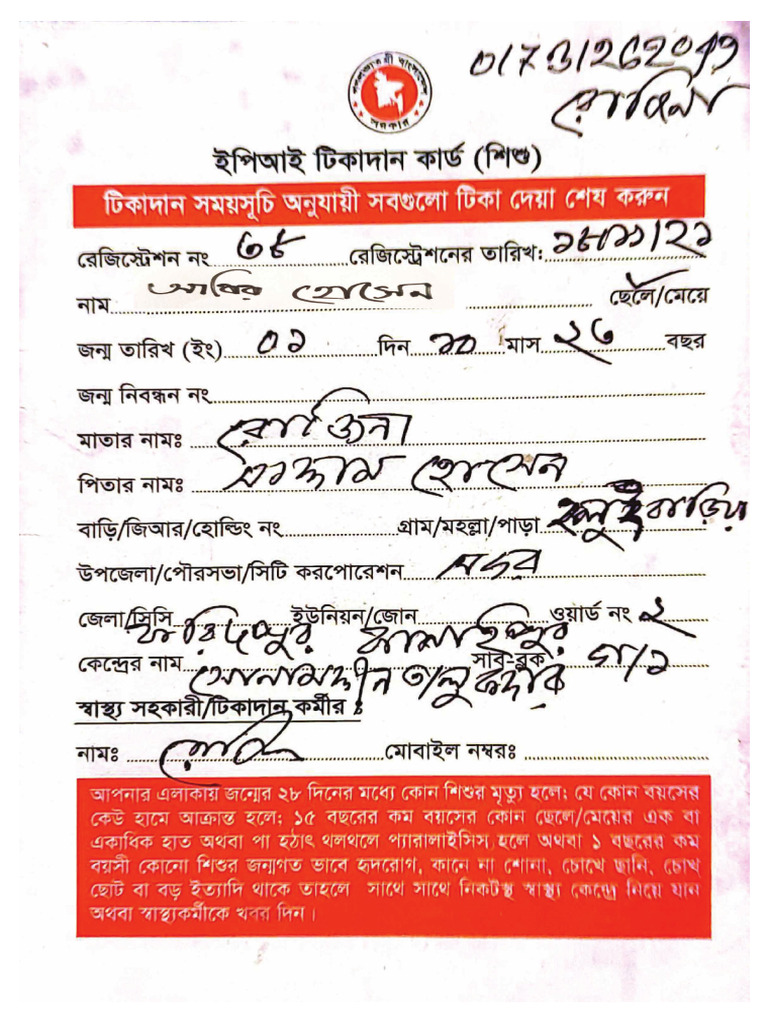 গণপ্রজাতন্ত্রী বাংলাদেশ সরকার
রোজিনা
ইপিআই টিকাদান কার্ড (শিশু)
টিকাদান সময়সূচি অনুযায়ী সবগুলো টিকা দেয়া শেষ করুন
রেজিস্ট্রেশন নং ৩৮ রেজিস্ট্রেশনের তারিখ:
নাম হোসেন ছেলে/মেয়ে
জন্ম তারিখ (ইং) ০১ দিন ১০ মাস ২৩ বছর
জন্ম নিবন্ধন নং
মাতার নামঃ রোজিনা
পিতার নামঃ হোসেন
বাড়ি/জিআর/হোল্ডিং নং গ্রাম/মহল্লা/পাড়া
উপজেলা/পৌরসভা/সিটি করপোরেশন সদর
জেলা/সিসি ফরিদপুর ইউনিয়ন/জোন কানাইপুর ওয়ার্ড নং ২
কেন্দ্রের নাম তালুকদার সাব-ব্লক গ/১
স্বাস্থ্য সহকারী/টিকাদান কর্মীর ঃ
নামঃ মোবাইল নম্বরঃ
আপনার এলাকায় জন্মের ২৮ দিনের মধ্যে কোন শিশুর মৃত্যু হলে; যে কোন বয়সের
কেউ হামে আক্রান্ত হলে; ১৫ বছরের কম বয়সের কোন ছেলে/মেয়ের এক বা
একাধিক হাত অথবা পা হঠাৎ থলথলে প্যারালাইসিস হলে অথবা ১ বছরের কম
বয়সী কোনো শিশুর জন্মগত ভাবে হৃদরোগ, কানে না শোনা, চোখে ছানি, চোখ
ছোট বা বড় ইত্যাদি থাকে তাহলে সাথে সাথে নিকটস্থ স্বাস্থ্য কেন্দ্রে নিয়ে যান
অথবা স্বাস্থ্যকর্মীকে খবর দিন।